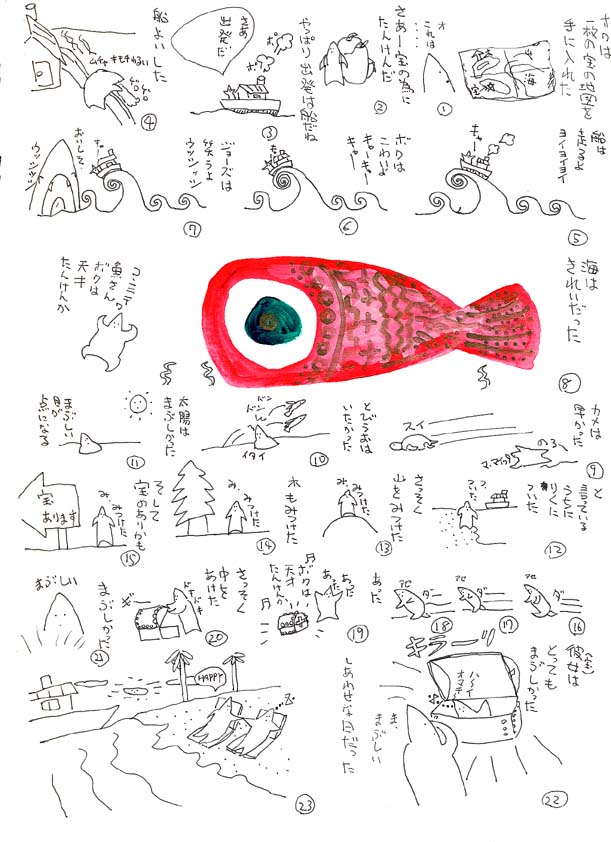 ボクは
一枚の宝の地図を
手に入れた
山
海
宝
オ
これは
・・・・
①
さあー宝の為に
たんけんだ
②
やっぱり出発は船だね
さあ
出発だ
ポッ
ポッ
③
船よいした
ムチャキモチわるい
ゲロ
ゲロ
④
船は
走るよ
ヨイヨイヨイ
キャー
⑤
ボクは
こわいよ
キャーキャー
キャー
キャー
⑥
ジョーズは
笑うよ
ウッシッシッ
キャー
おいしそ〜
ウッシッシッ
⑦
海は
きれいだった
⑧
コンニチワ
魚さん
ボクは
天才
たんけんか
カメは
早かった
スイ
のろ
マ・マイッタ
⑨
とびうおは
いたかった
ドン
ドン
イタイ
⑩
太陽は
まぶしかった
まぶしい
目が
点になる
⑪
と
言っている
うちに
りくに
ついた
つ、
ついた
⑫
さっそく
山をみつけた
み、
みつけた
⑬
木もみつけた
み、
みつけた
⑭
そして
宝のありかも
み、
みつけた
宝
あります
⑮
ダー
⑯
ダー
⑰
ダー
⑱
あった
あった
あった
ボクは
天才
たんけんか
⑲
さっそく
中を
あけた
ドキドキ
⑳
まぶしかった
まぶしい
㉑
彼女は
(宝)
とっても
まぶしかった
キラーッ
ハーイ
オマチ
ま、
まぶしい
㉒
しあわせな日だった
HAPPY
Z
㉓